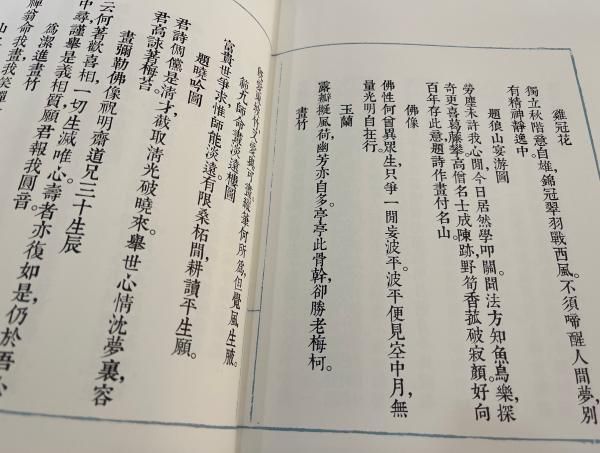 雞冠花
獨立秋階意自雄,錦冠翠羽戰西風。不須啼醒人間夢,別
有精神靜逸中。
題狼山宴游圖
勞塵未許我心閒,今日居然學叩關。聞法方知魚鳥樂,探
奇更喜葛藤攀。高僧名士成陳跡,野筍香菰破寂顏。好向
百年存此意,題詩作畫付名山。
佛像
佛性何曾異眾生,只爭一開妄波平。波平便見空中月,無
量光明自在行。
玉蘭
露瓣擬風荷,幽芳亦自多。亭亭此骨幹,卻勝老梅柯。
畫竹
但覺風生腋。
師命識淡遠樓圖
富貴世爭求,惟師能淡遠。有限桑柘間,耕讀平生願。
題曉吟圖
君詩倜儻是清才,截取清光破曉來。舉世心情沈夢裏,容
君高詠著梅苔。
畫彌勒佛像祝明齋道兄三十生辰
云何著歡喜相,一切生滅唯心。壽者亦復如是,仍於吾心
中尋。謹舉是義相質,願君報我圓音。
為潔進畫竹
禪翁命我畫,我笑禪